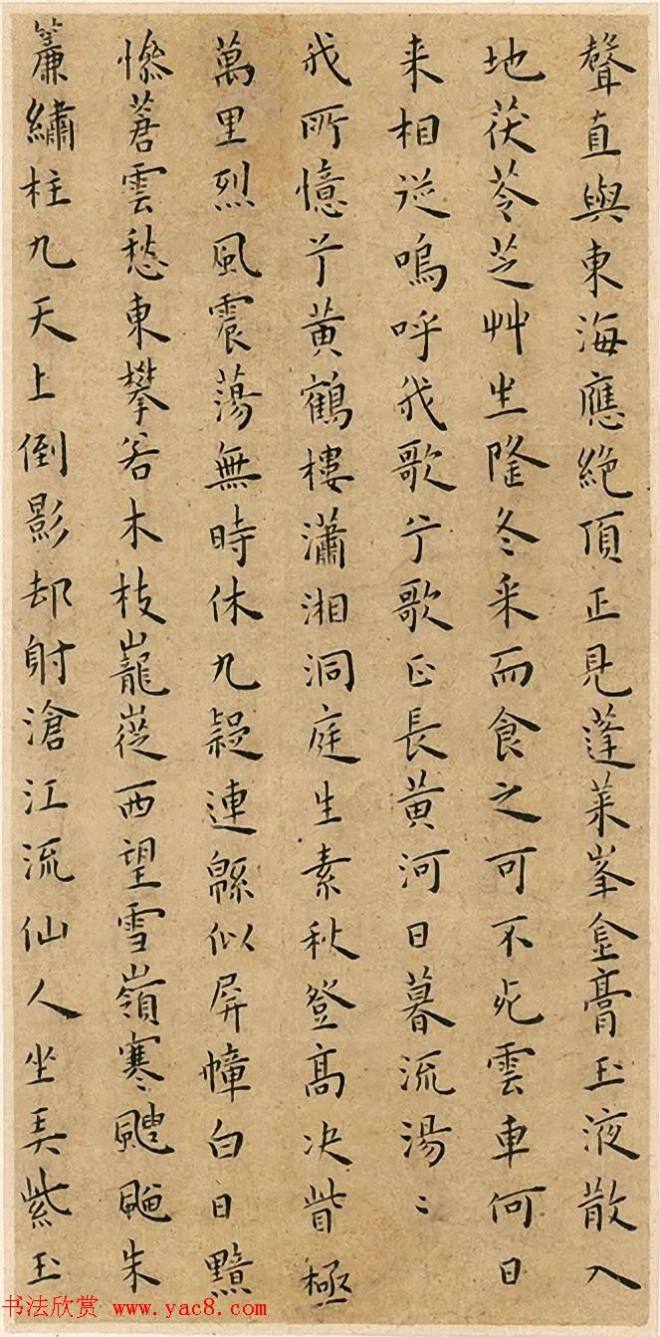 聲直與東海應絕頂正見蓬萊峯金膏玉液散入
地茯苓芝艸生隆冬采而食之可不死雲車何日
来相從嗚呼我歌兮歌正長黃河日暮流湯〻
我所憶兮黃鶴樓瀟湘洞庭生素秋登高決眥極
萬里烈風震蕩無時休九疑連緜似屏幛白日黯
慘蒼雲愁東攀若木枝巃嵸西望雪嶺寒颼飀朱
簾繡柱九天上倒影却射滄江流仙人坐弄紫玉
书法欣赏 www.yac8.com